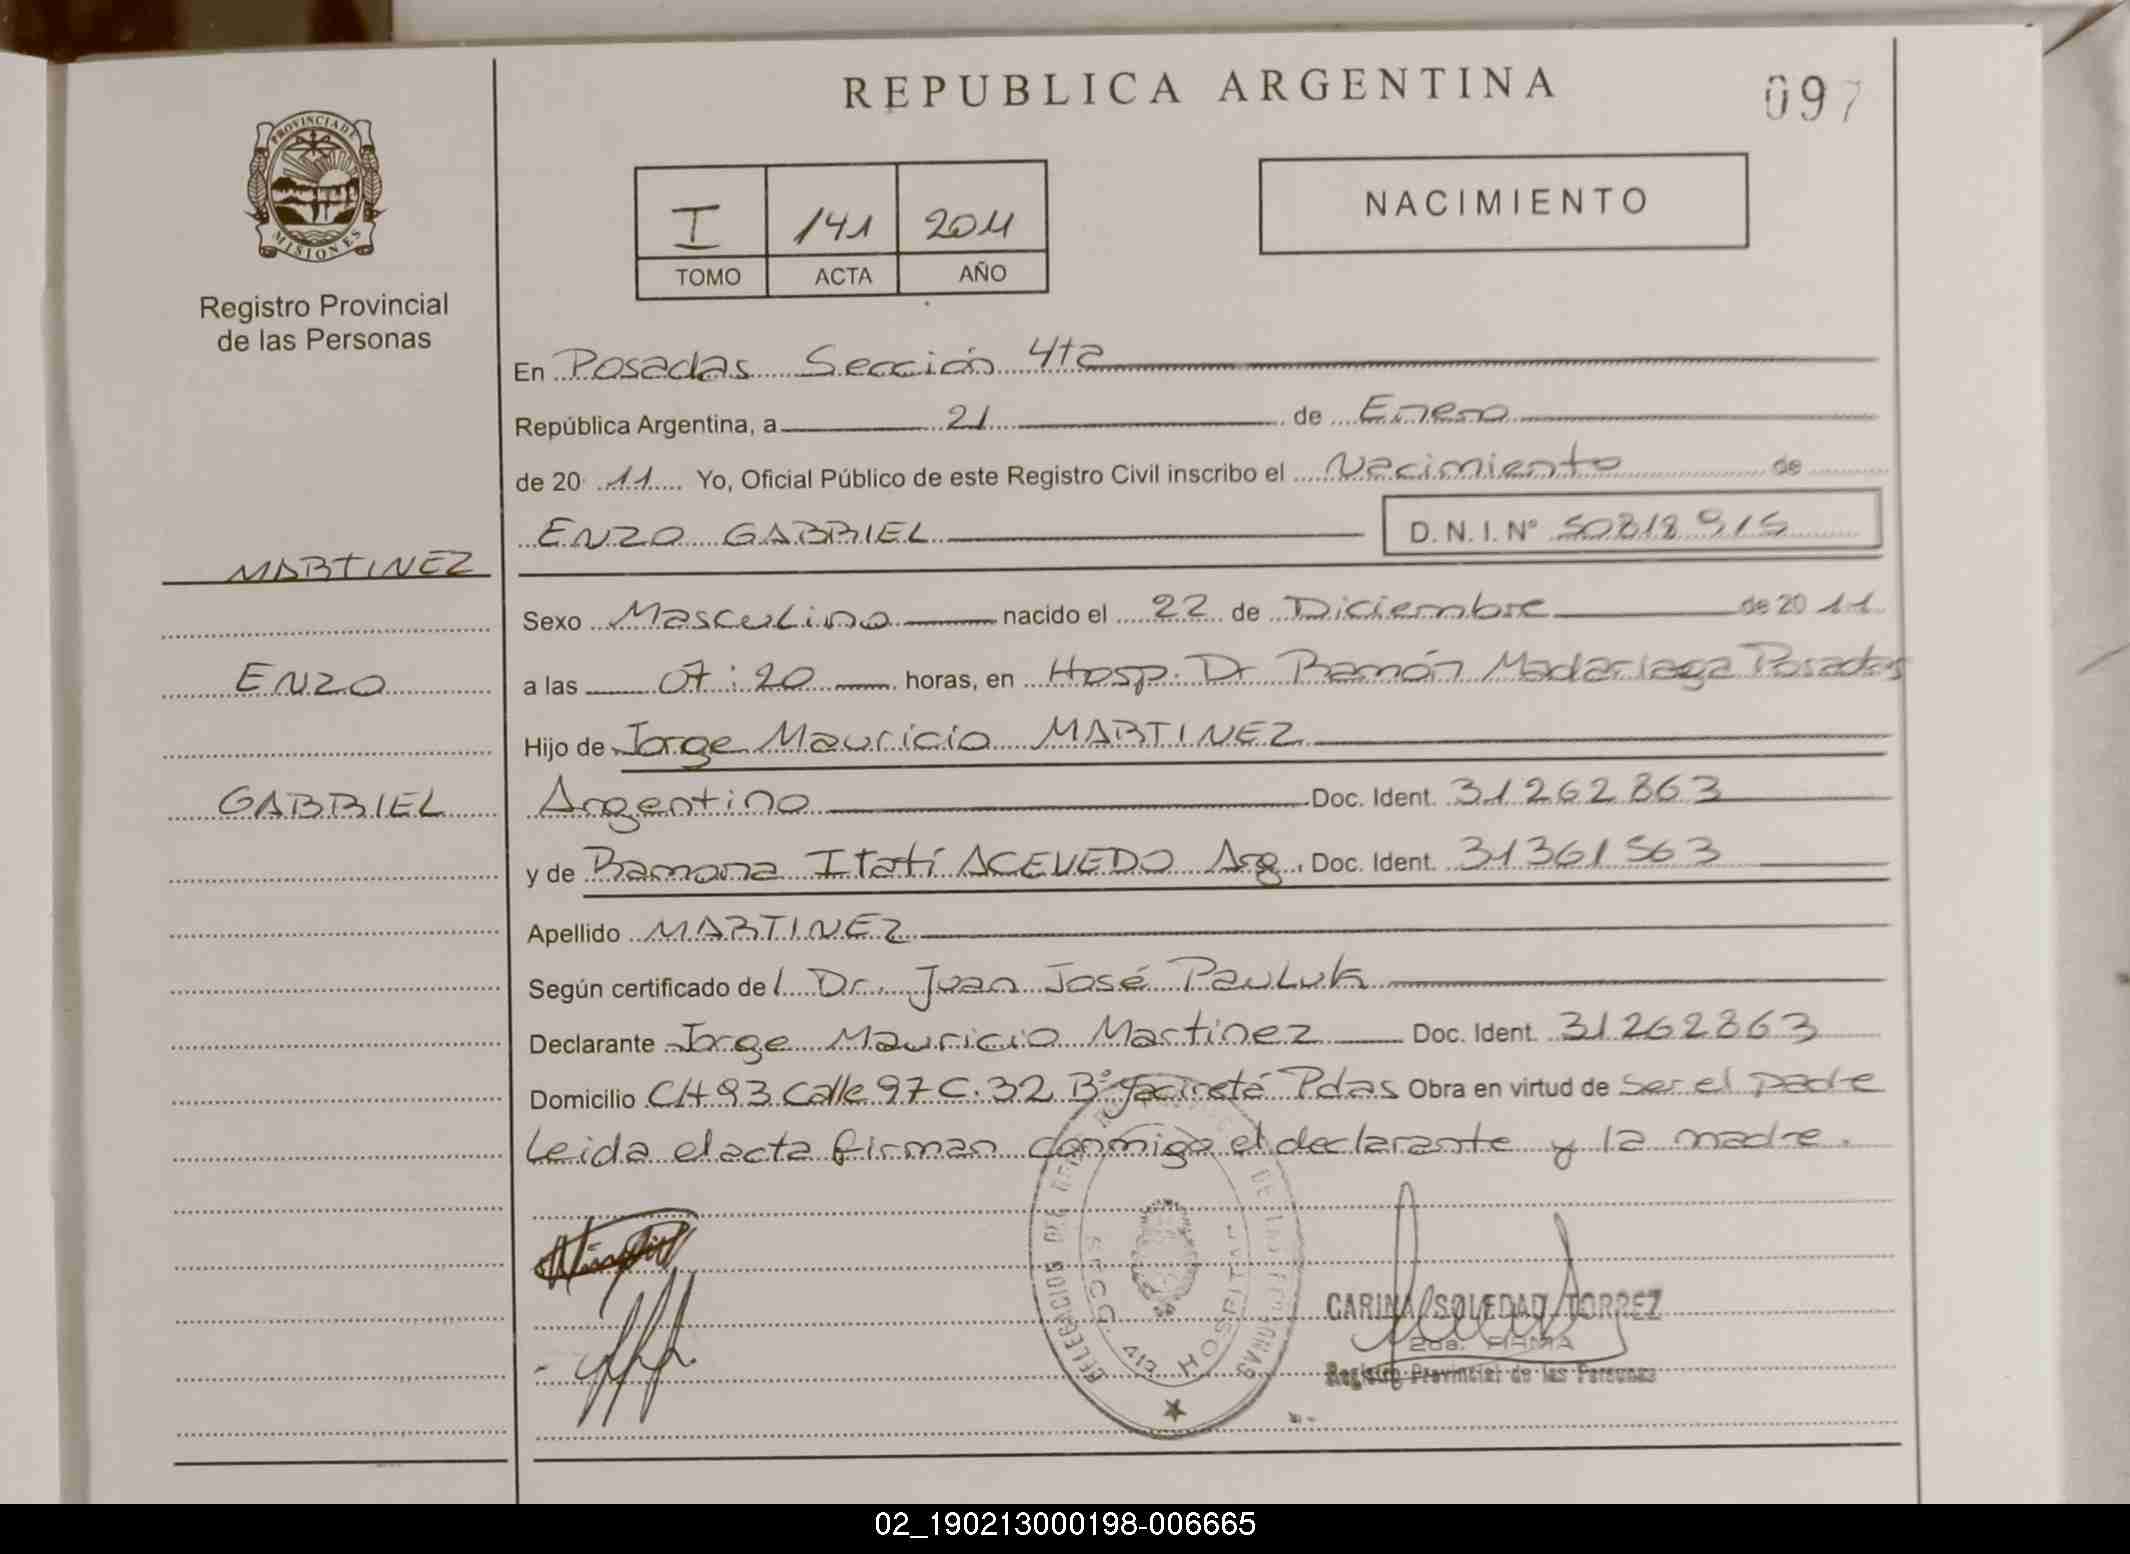 REPUBLICA ARGENTINA
097
PROVINCIA DE
MISIONES
Registro Provincial
de las Personas
I 141 2011
TOMO ACTA AÑO
NACIMIENTO
En Posadas Sección 4ta
República Argentina, a 21 de Enero
de 20 11 Yo, Oficial Público de este Registro Civil inscribo el Nacimiento de
ENZO GABRIEL D.N.I.Nº 50818915
MARTINEZ
Sexo Masculino nacido el 22 de Diciembre de 20 11
ENZO
a las 07:20 horas, en Hosp. Dr Ramón Madariaga Posadas
Hijo de Jorge Mauricio MARTINEZ
GABRIEL
Argentino Doc. Ident. 31262863
y de Ramona Itatí ACEVEDO Arg. Doc. Ident. 31361563
Apellido MARTINEZ
Según certificado del Dr. Juan José Pauluk
Declarante Jorge Mauricio Martinez Doc. Ident. 31262863
Domicilio CH 93 Calle 97 C. 32 Bº Yacireté Pdas Obra en virtud de ser el padre
Leida el acta firman conmigo el declarante y la madre.
DE LAS PERSONAS
SECC. 4ta HOSPITAL
CARINA SOLEDAD TORREZ
2da. FIRMA
Registro Provincial de las Personas
02_190213000198-006665